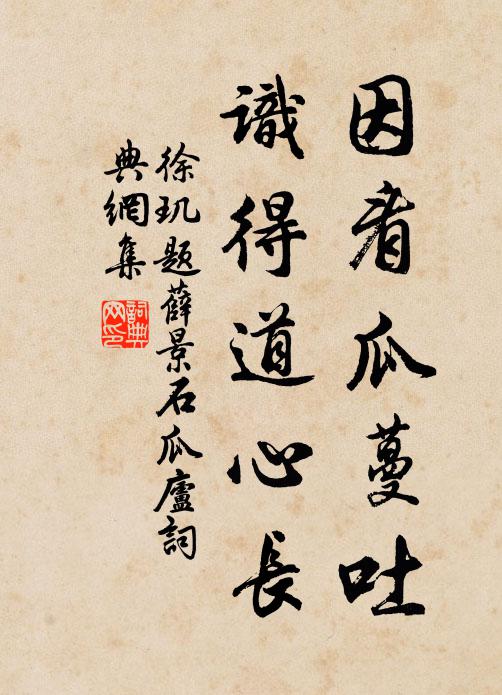 因看瓜蔓吐
識得道心長
徐玑題薛景石瓜廬詞
典網集
詞典
网印